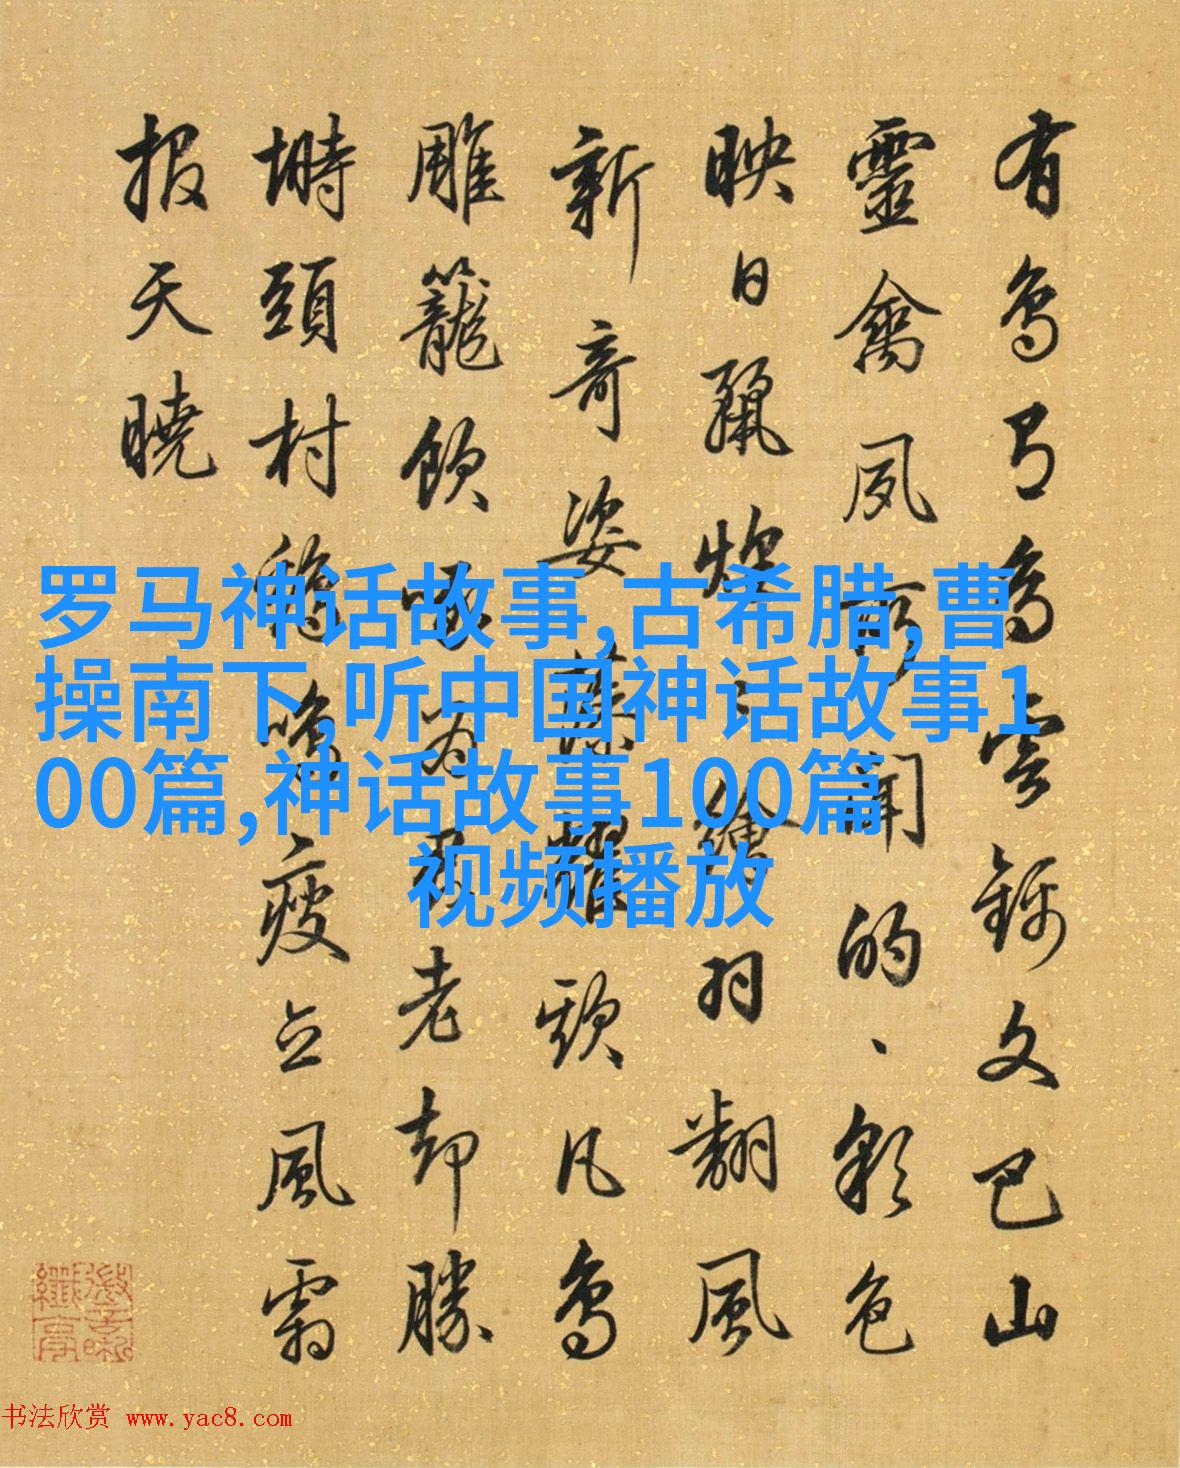 有鳥有鳥雲錦文巴山
靈禽夙所聞的、彩色
映日麗煌、繪羽翻風
新奇姿藻耀凡鳥
雕籠飲啄為君老却勝
塒頭村雞鳴瘦立風霜
報天曉
罗马神话故事,古希腊,曹
操南下,听中国神话故事1
00篇,神话故事100篇
视频播放
书法欣赏 www.yac8.com